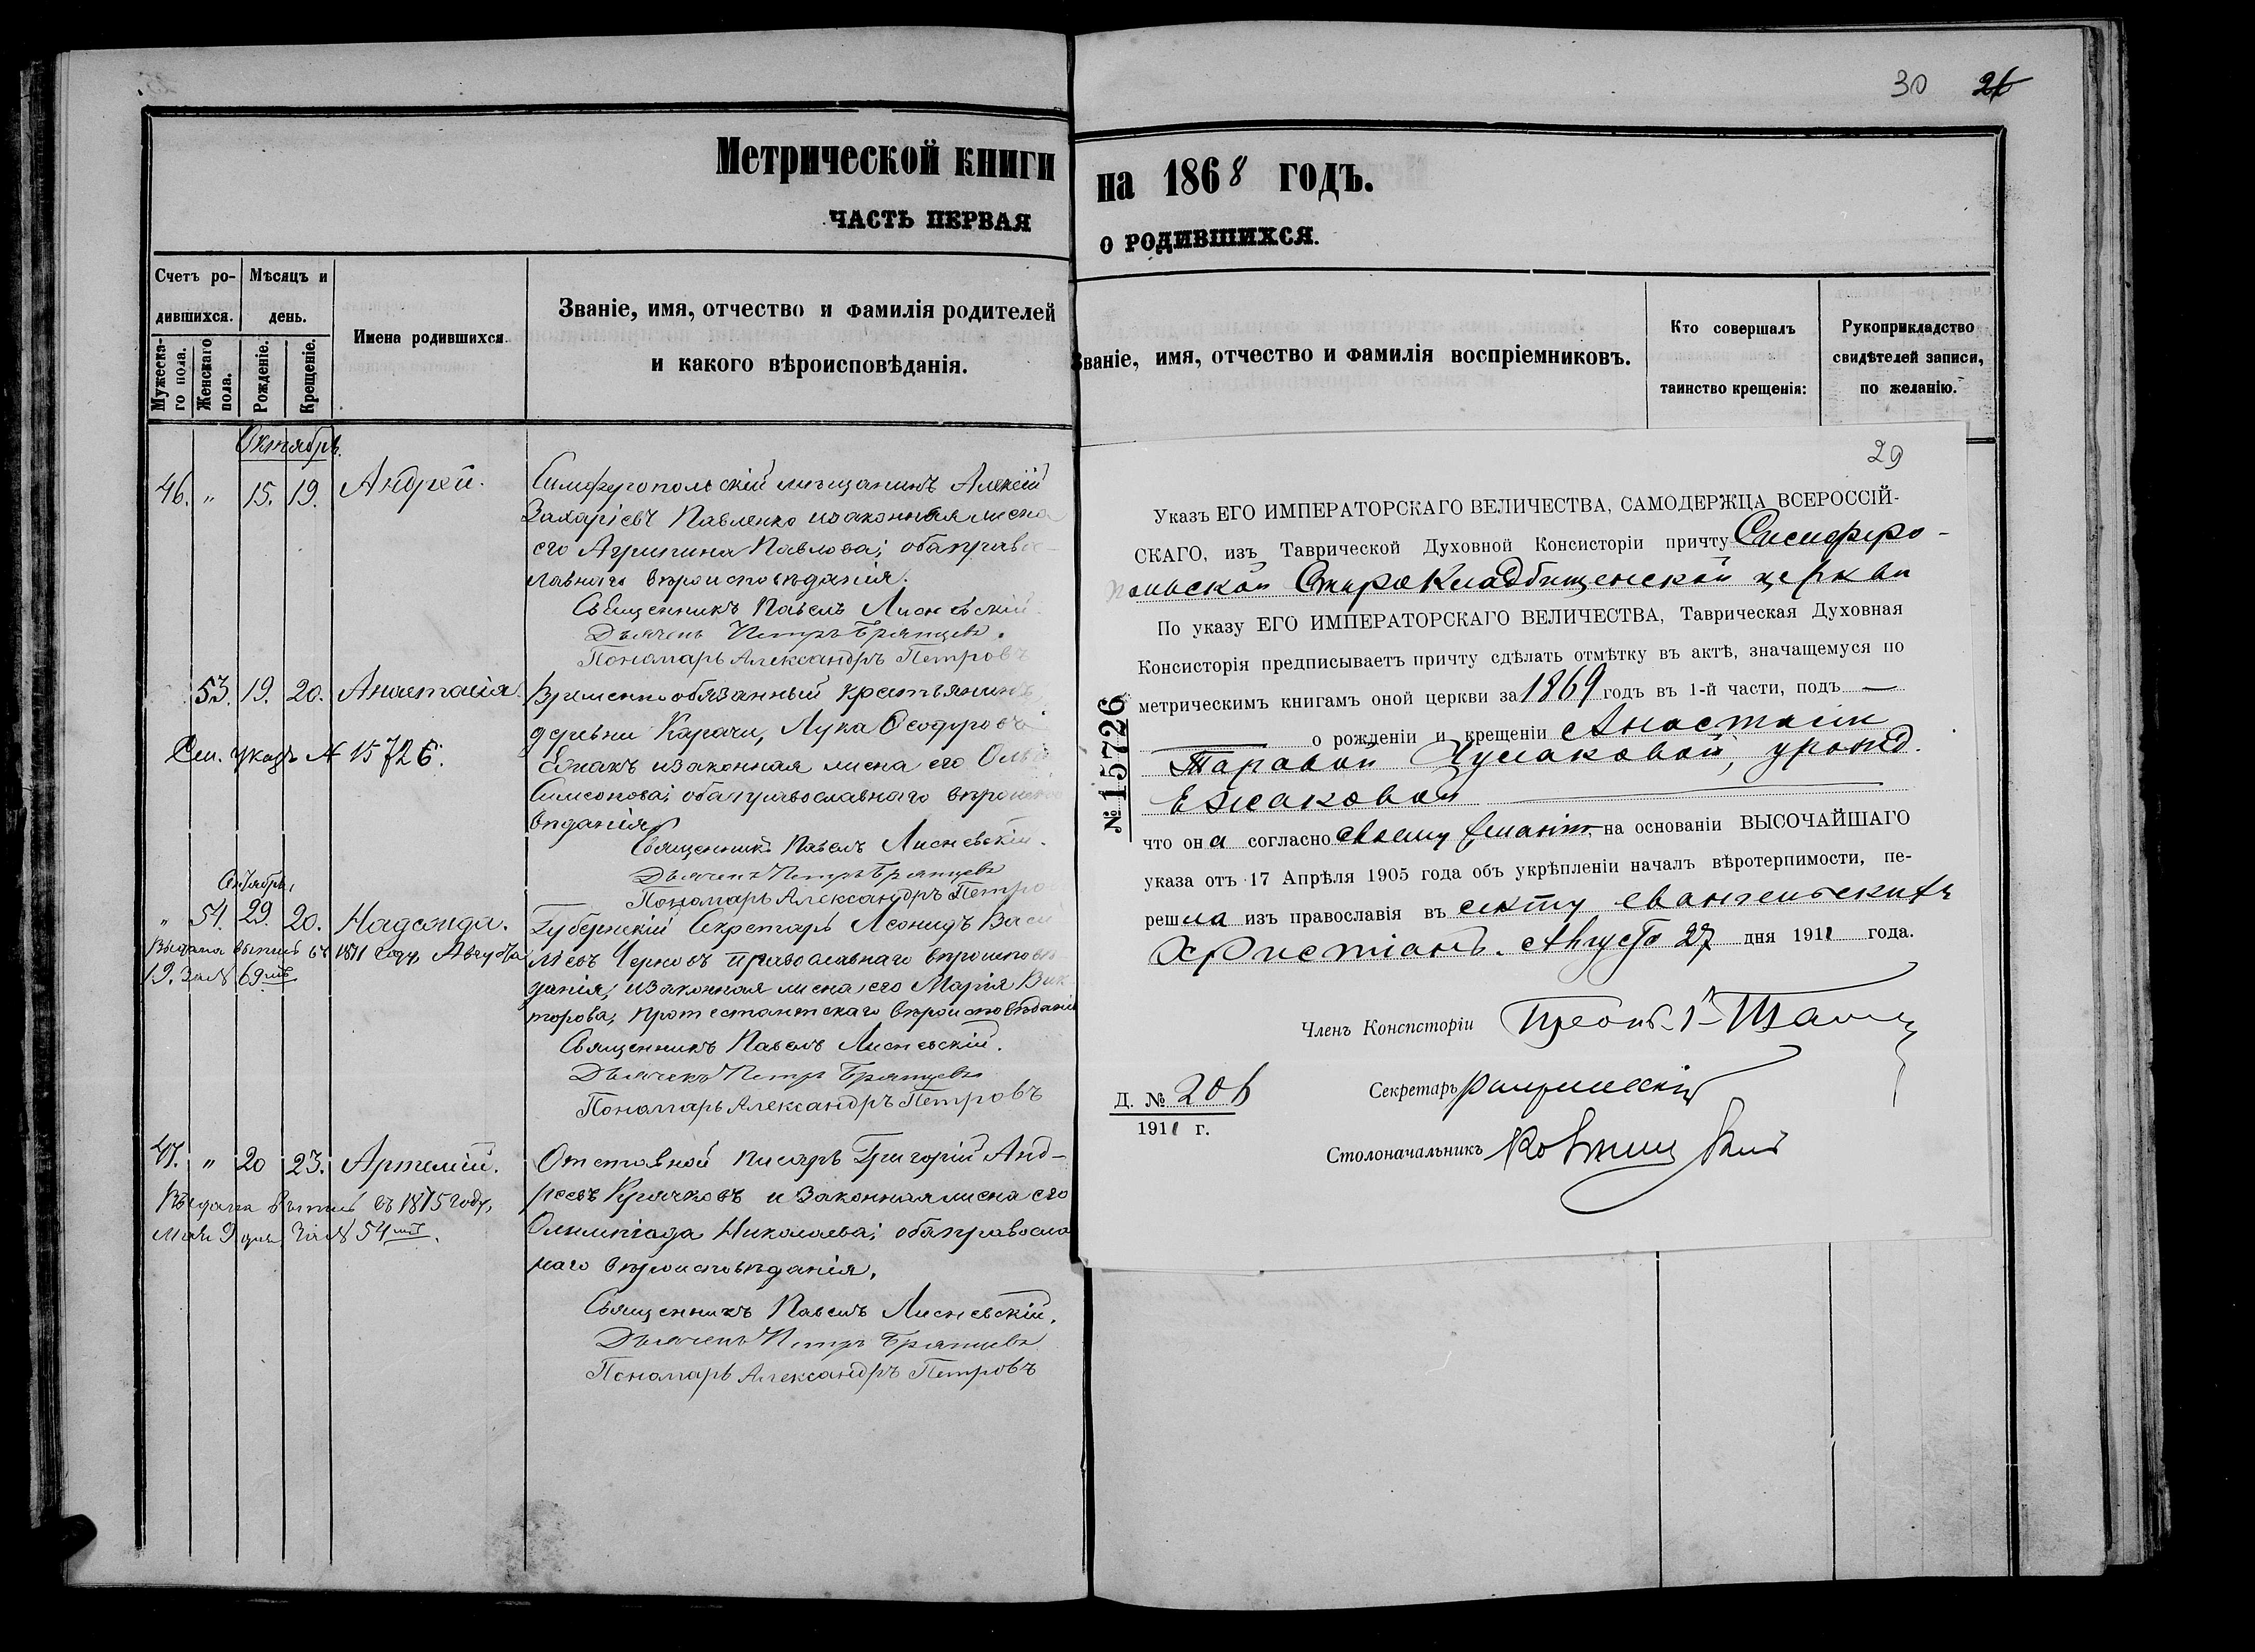 30 21
Метрической книги на 1868 годъ.
ЧАСТЬ ПЕРВАЯ о РОДИВШИХСЯ.
Счетъ ро-
дившихся.
Мужеска-
го пола.
Женскаго
пола.
Мѣсяцъ и
день.
Рожденіе.
Крещеніе.
Имена родившихся.
Званіе, имя, отчество и фамилія родителей
и какого вѣроисповѣданія.
Званіе, имя, отчество и фамилія воспріемниковъ.
Кто совершалъ
таинство крещенія:
Рукоприкладство
свидѣтелей записи,
по желанію.
Октябрь.
46. " 15. 19. Андрей.
Симферопольскій мѣщанинъ Алексій
Захаріевъ Павленко и законная жена
его Агрипина Павлова; оба правос-
лавнаго вѣроисповѣданія.
Священникъ Павелъ Лисневскій
Дьячекъ Петръ Брянцевъ.
Пономарь Александръ Петровъ
53. 19. 20. Анастасія.
Временнообязанный крестьянинъ
деревни Карачи, Лука Ѳеодоровъ
Ежакъ и законная жена его Ольга
Симеонова; оба православнаго вѣроиспо
вѣданія
Священникъ Павелъ Лисневскій.
Дьячекъ Петръ Брянцевъ
Пономарь Александръ Петровъ
См. указъ № 15726.
" 54. 29. 20. Надежда.
Губернскій Секретарь Леонидъ Васи
ліевъ Черновъ православнаго вѣроисповѣ
данія, и законная жена его Марія Вик
торова, протестантскаго вѣроисповѣданія
Священникъ Павелъ Лисневскій.
Дьячекъ Петръ Брянцевъ
Пономарь Александръ Петровъ
19. За № 69мъ
47. " 20 23. Артемій.
Отставной писарь Григорій Анд-
реевъ Крячковъ и законная жена его
Олимпіада Николаева; оба правосла
наго вѣроисповѣданія.
Священникъ Павелъ Лисневскій.
Дьячекъ Петръ Брянцевъ
Пономарь Александръ Петровъ
Выдана въ 1875 году,
Мая 9 дня За № 54мъ.
29
Указъ ЕГО ИМПЕРАТОРСКАГО ВЕЛИЧЕСТВА, САМОДЕРЖЦА ВСЕРОССІЙ-
СКАГО, изъ Таврической Духовной Консисторіи причту Симферо-
польской Старокладбищенской церкви
По указу ЕГО ИМПЕРАТОРСКАГО ВЕЛИЧЕСТВА, Таврическая Духовная
Консисторія предписываетъ причту сдѣлать отмѣтку въ актѣ, значащемуся по
метрическимъ книгамъ оной церкви за 1869 годъ въ 1-й части, подъ —
о рожденіи и крещеніи Анастасіи
Тарасовой Чумаковой, урожд.
Ежаковой
что она согласно своему желанію, на основаніи ВЫСОЧАЙШАГО
указа отъ 17 Апрѣля 1905 года объ укрѣпленіи началъ вѣротерпимости, пе-
решла изъ православія въ секту евангельскихъ
христіанъ. Августа 27 дня 1911 года.
№ 15726
Членъ Консисторіи
Секретарь
Столоначальникъ
Д. № 206
1911 г.